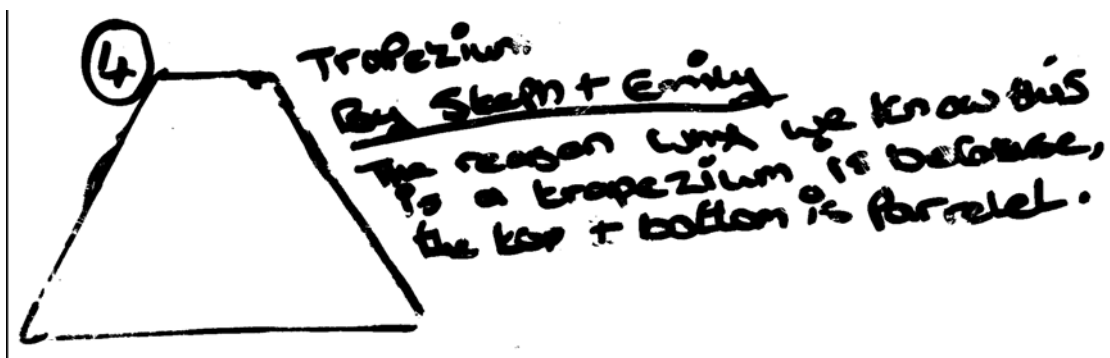 4
Trapezium.
By Steph + Emily
The reason why we know this
is a trapezium is because,
the top + bottom is parrelel.